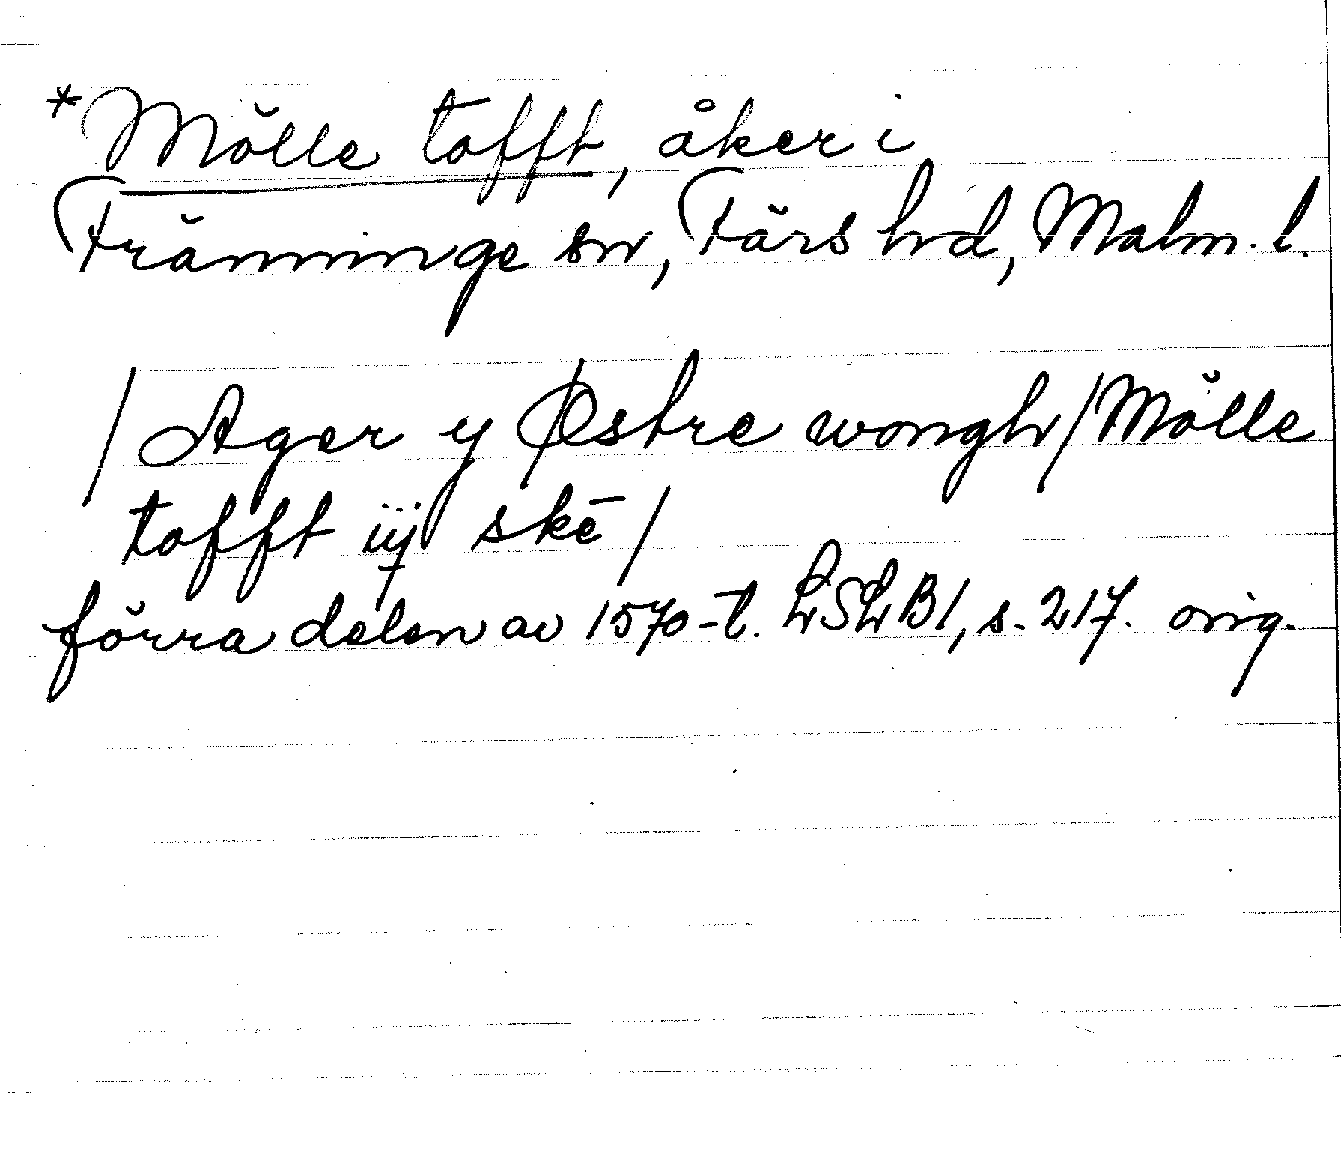 *Mölle tofft, åker i
Fränninge sn, Färs hd, Malm. l.
/Ager y Østre wongh/Mölle
tofft iij skē/
förra delen av 1570-t. LSLB1, s. 217. orig.